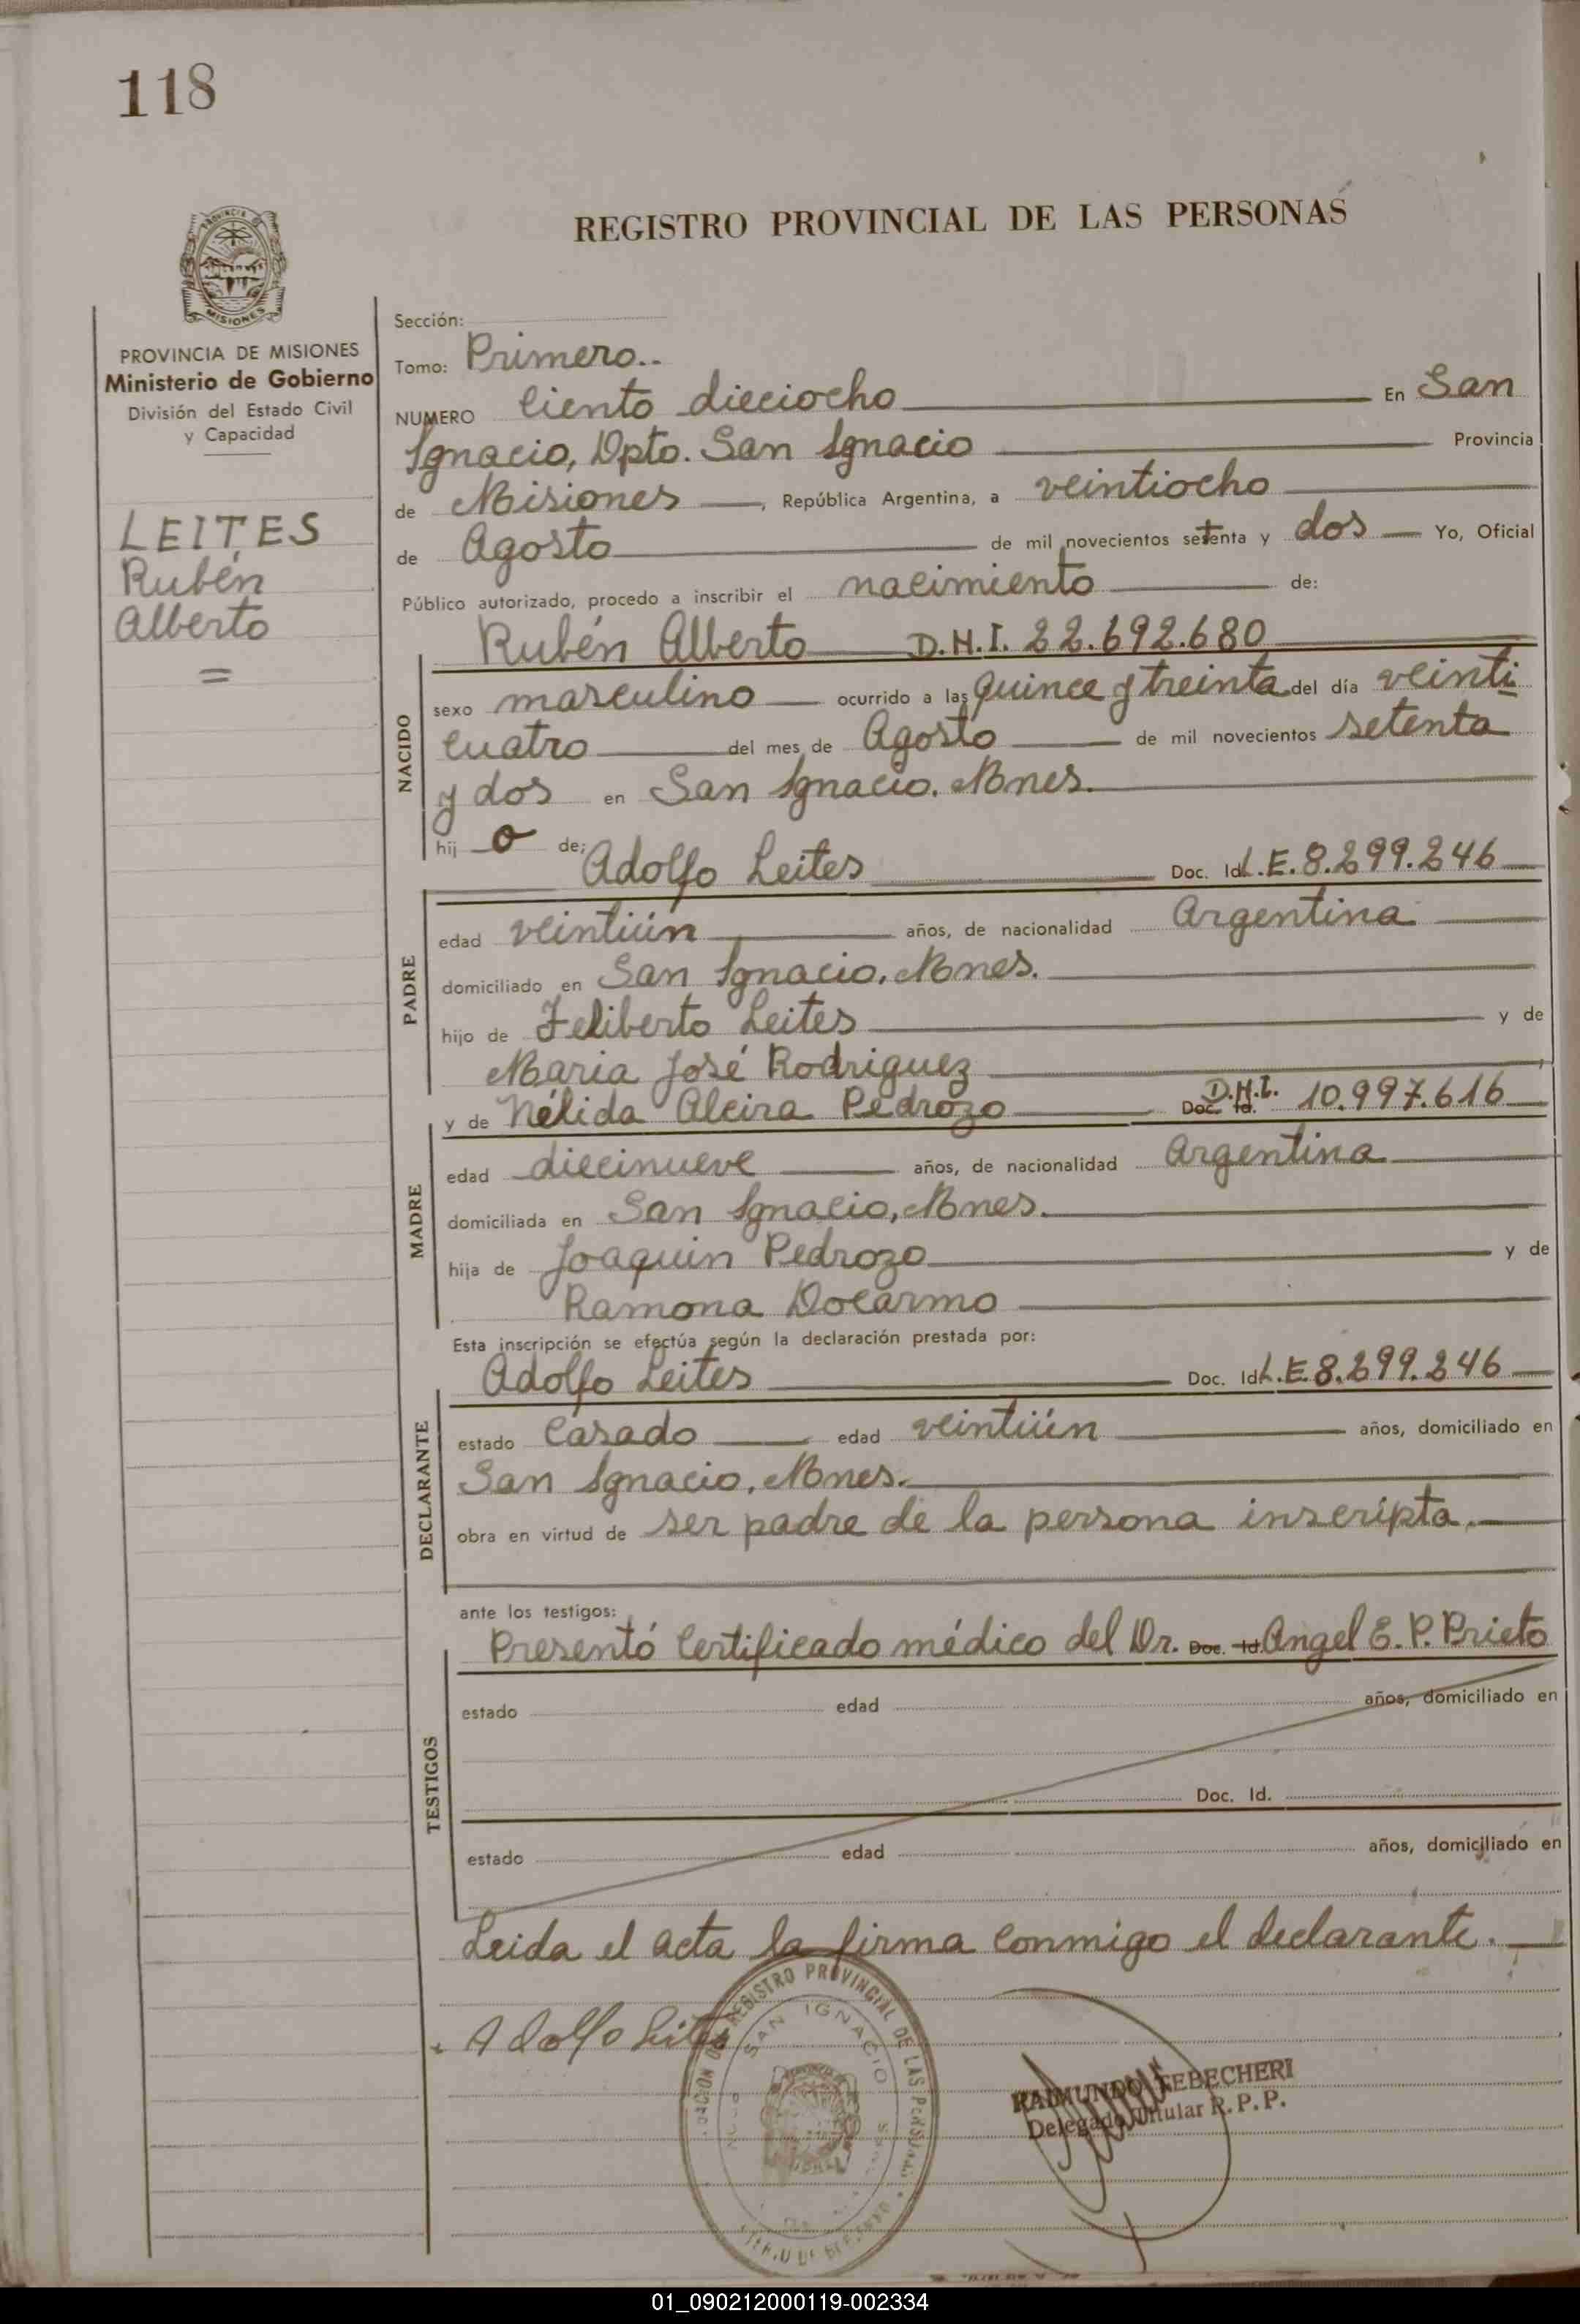 118
REGISTRO PROVINCIAL DE LAS PERSONAS
PROVINCIA DE MISIONES
Ministerio de Gobierno
División del Estado Civil
y Capacidad
LEITES
Rubén
Alberto
=
Sección:
Tomo: Primero..
NUMERO Ciento dieciocho En San
Ignacio, Dpto. San Ignacio Provincia
de Misiones, República Argentina, a veintiocho
de Agosto de mil novecientos setenta y dos Yo, Oficial
Público autorizado, procedo a inscribir el nacimiento de:
Rubén Alberto D.N.I. 22.692.680
NACIDO
sexo masculino ocurrido a las quince y treinta del día veinti
cuatro del mes de Agosto de mil novecientos setenta
y dos en San Ignacio, Mnes.
hij o de: Adolfo Leites Doc. Id. L.E. 8.299.246
PADRE
edad veintiún años, de nacionalidad Argentina
domiciliado en San Ignacio, Mnes.
hijo de Feliberto Leites y de
Maria José Rodriguez
y de Nélida Alcira Pedrozo Doc. Id. D.N.I. 10.997.616
MADRE
edad diecinueve años, de nacionalidad Argentina
domiciliada en San Ignacio, Mnes.
hija de Joaquin Pedrozo y de
Ramona Docarmo
Esta inscripción se efectúa según la declaración prestada por:
Adolfo Leites Doc. Id. L.E. 8.299.246
DECLARANTE
estado Casado edad veintiún años, domiciliado en
San Ignacio, Mnes.
obra en virtud de ser padre de la persona inscripta.
ante los testigos:
Presentó Certificado médico del Dr. Doc. Id. Angel E. P. Prieto
TESTIGOS
estado edad años, domiciliado en
Doc. Id.
estado edad años, domiciliado en
Leida el acta la firma conmigo el declarante.
Adolfo Leites
REGISTRO PROVINCIAL DE LAS PERSONAS
SAN IGNACIO
RAIMUNDO FEBECHERI
Delegado Titular R. P. P.
01_090212000119-002334